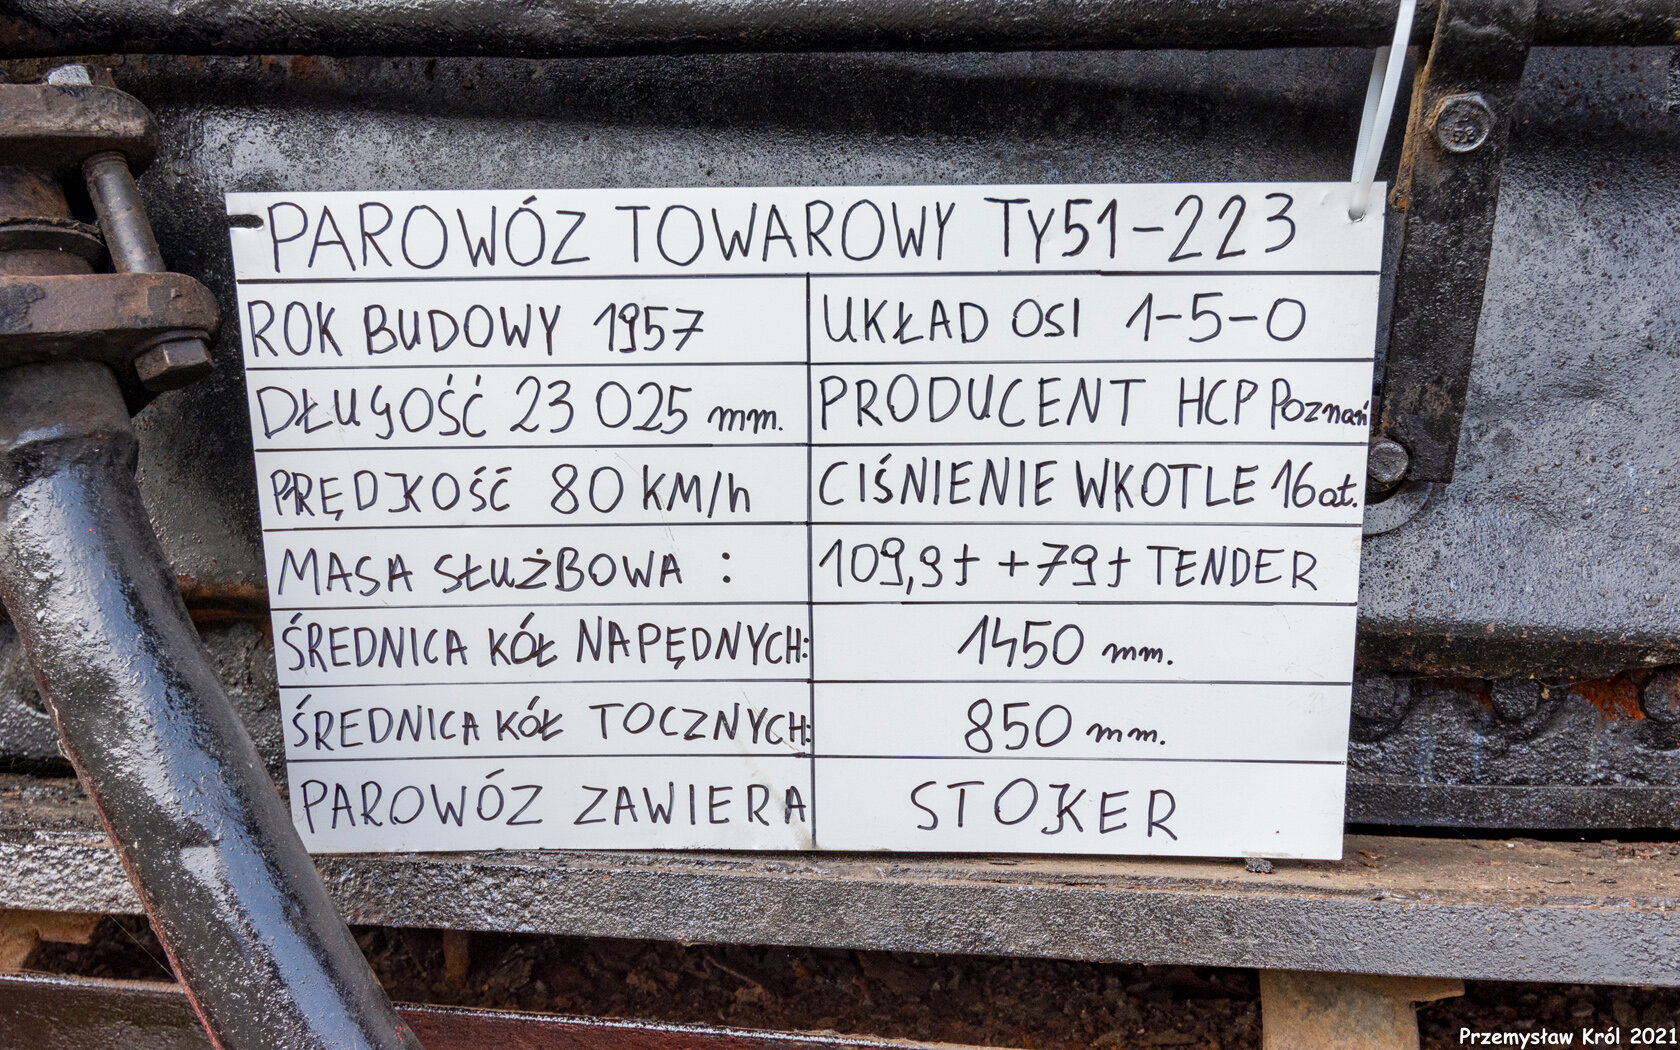 PAROWÓZ TOWAROWY TY51-223
ROK BUDOWY 1957
UKŁAD OSI 1-5-0
DŁUGOŚĆ 23 025 mm.
PRODUCENT HCP Poznań
PRĘDKOŚĆ 80 KM/h
CIŚNIENIE W KOTLE 16 at.
MASA SŁUŻBOWA :
109,9t + 79t TENDER
ŚREDNICA KÓŁ NAPĘDNYCH:
1450 mm.
ŚREDNICA KÓŁ TOCZNYCH:
850 mm.
PAROWÓZ ZAWIERA
STOKER
Przemysław Król 2021